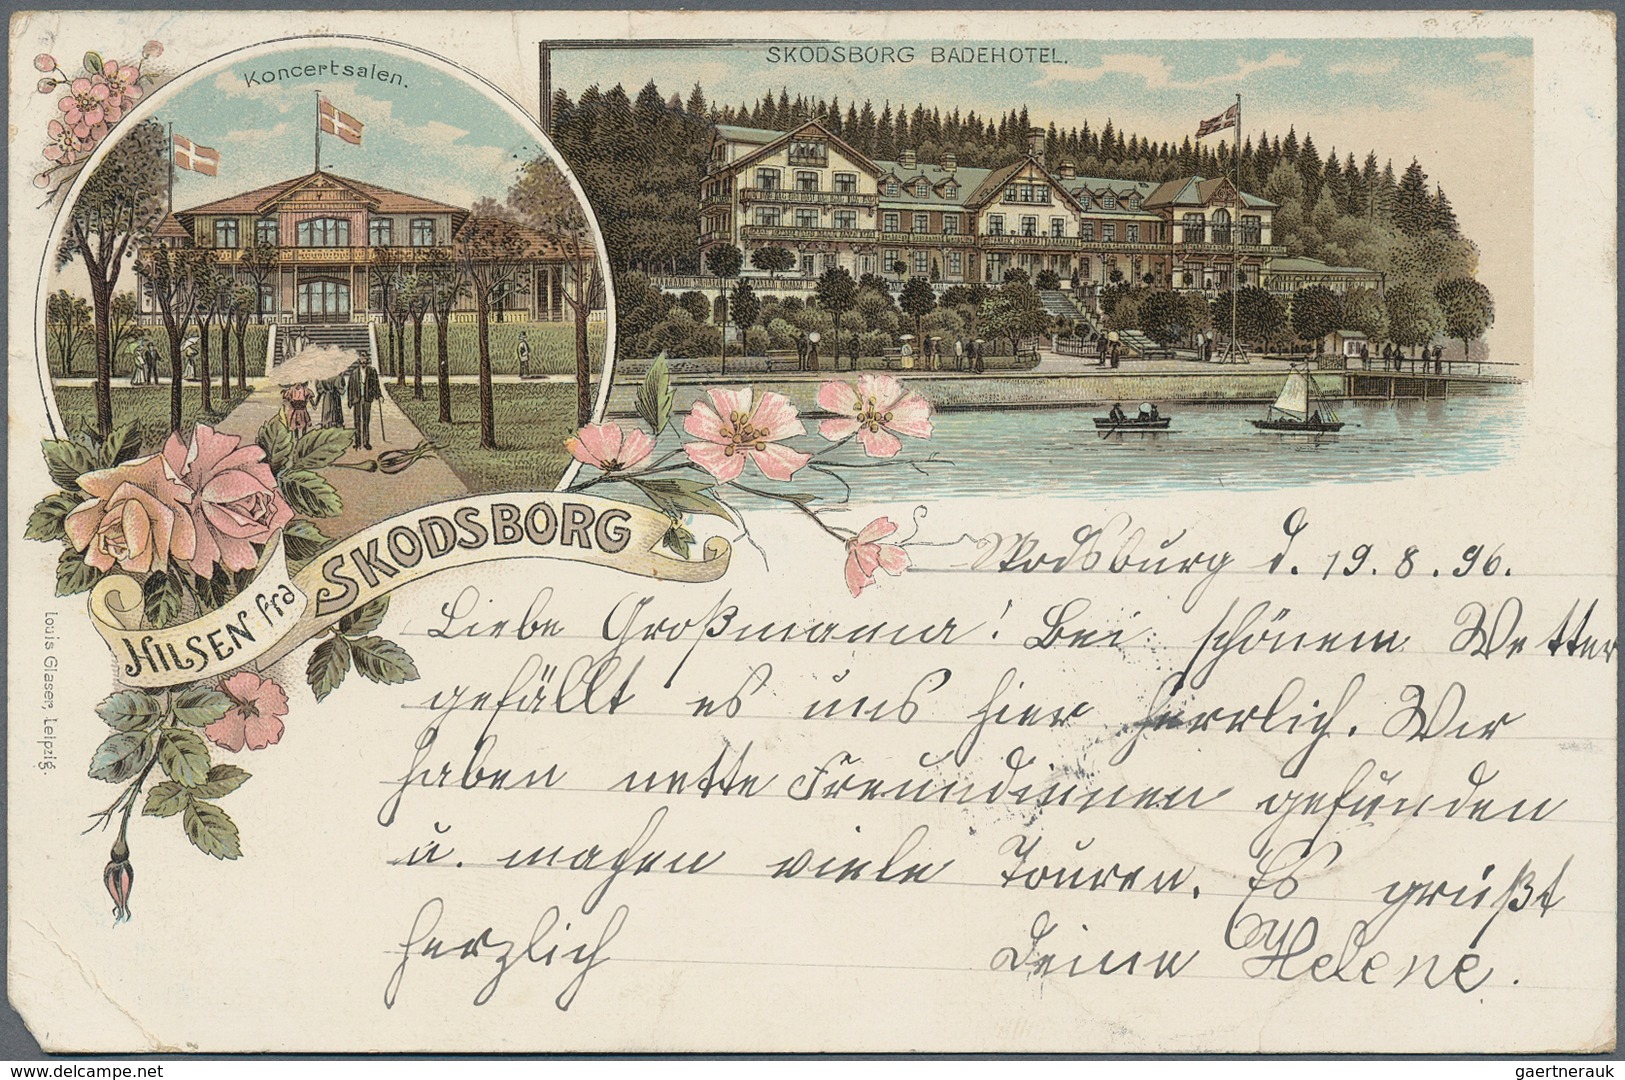 Koncertsalen.
SKODSBORG BADEHOTEL.
HILSEN fra SKODSBORG
Louis Glaser, Leipzig.
Skodsburg d. 19. 8. 96.
Liebe Großmama! Bei schönem Wetter
gefällt es uns hier herrlich. Wir
haben nette Freundinnen gefunden
u. machen viele Touren. Es grüßt
herzlich Deine Helene.
www.delcampe.net
gaertnerauk